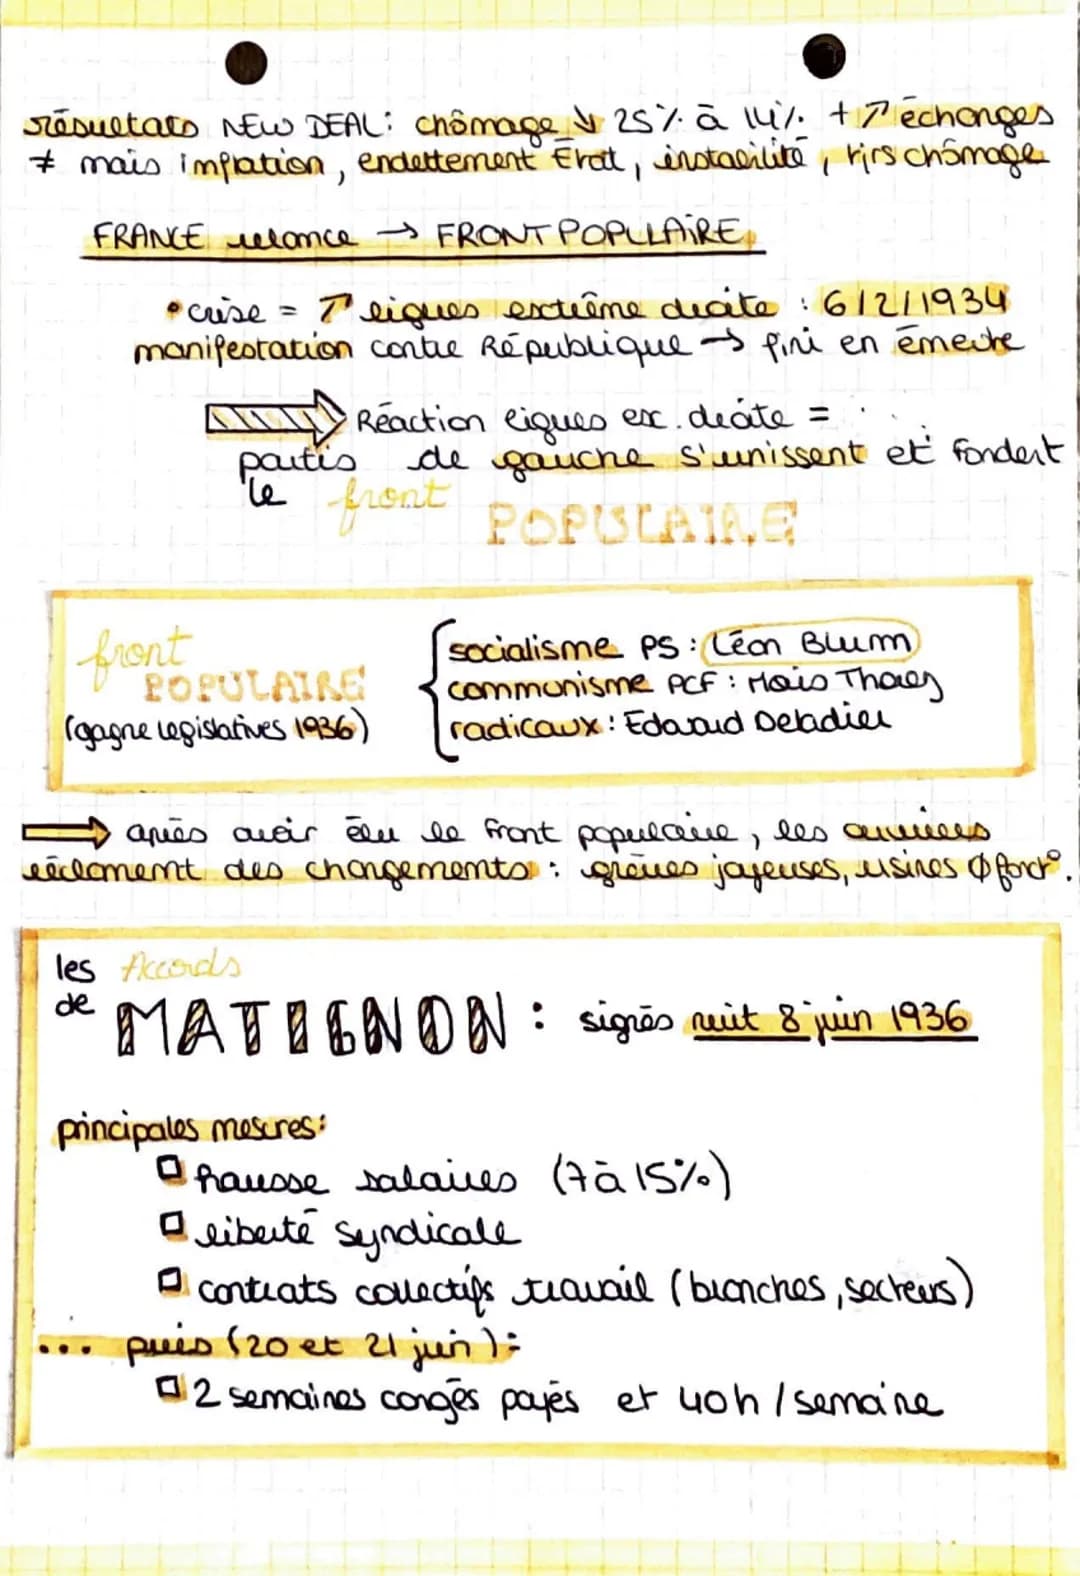 résultats NEW DEAL: chômage ↓ 25% à 14% + ↗ échanges
≠ mais inflation, endettement État, instabilité, tjrs chômage
FRANCE relance → FRONT POPULAIRE
• crise = ↗ ligues extrême droite : 6/2/1934
manifestation contre République → fini en émeute
⇒ Réaction ligues ex. droite =
partis de gauche s'unissent et fondent
le front POPULAIRE
front
POPULAIRE
(gagne législatives 1936)
socialisme PS : Léon Blum
communisme PCF : Maurice Thorez
radicaux : Edouard Deladier
⇒ après avoir élu le front populaire, les ouvriers
réclament des changements : grèves joyeuses, usines Ø fonct°.
les Accords
de MATIGNON : signés nuit 8 juin 1936
principales mesures:
□ hausse salaires (7 à 15%)
□ liberté syndicale
□ contrats collectifs travail (branches, secteurs)
... puis (20 et 21 juin) :
□ 2 semaines congés payés et 40h / semaine